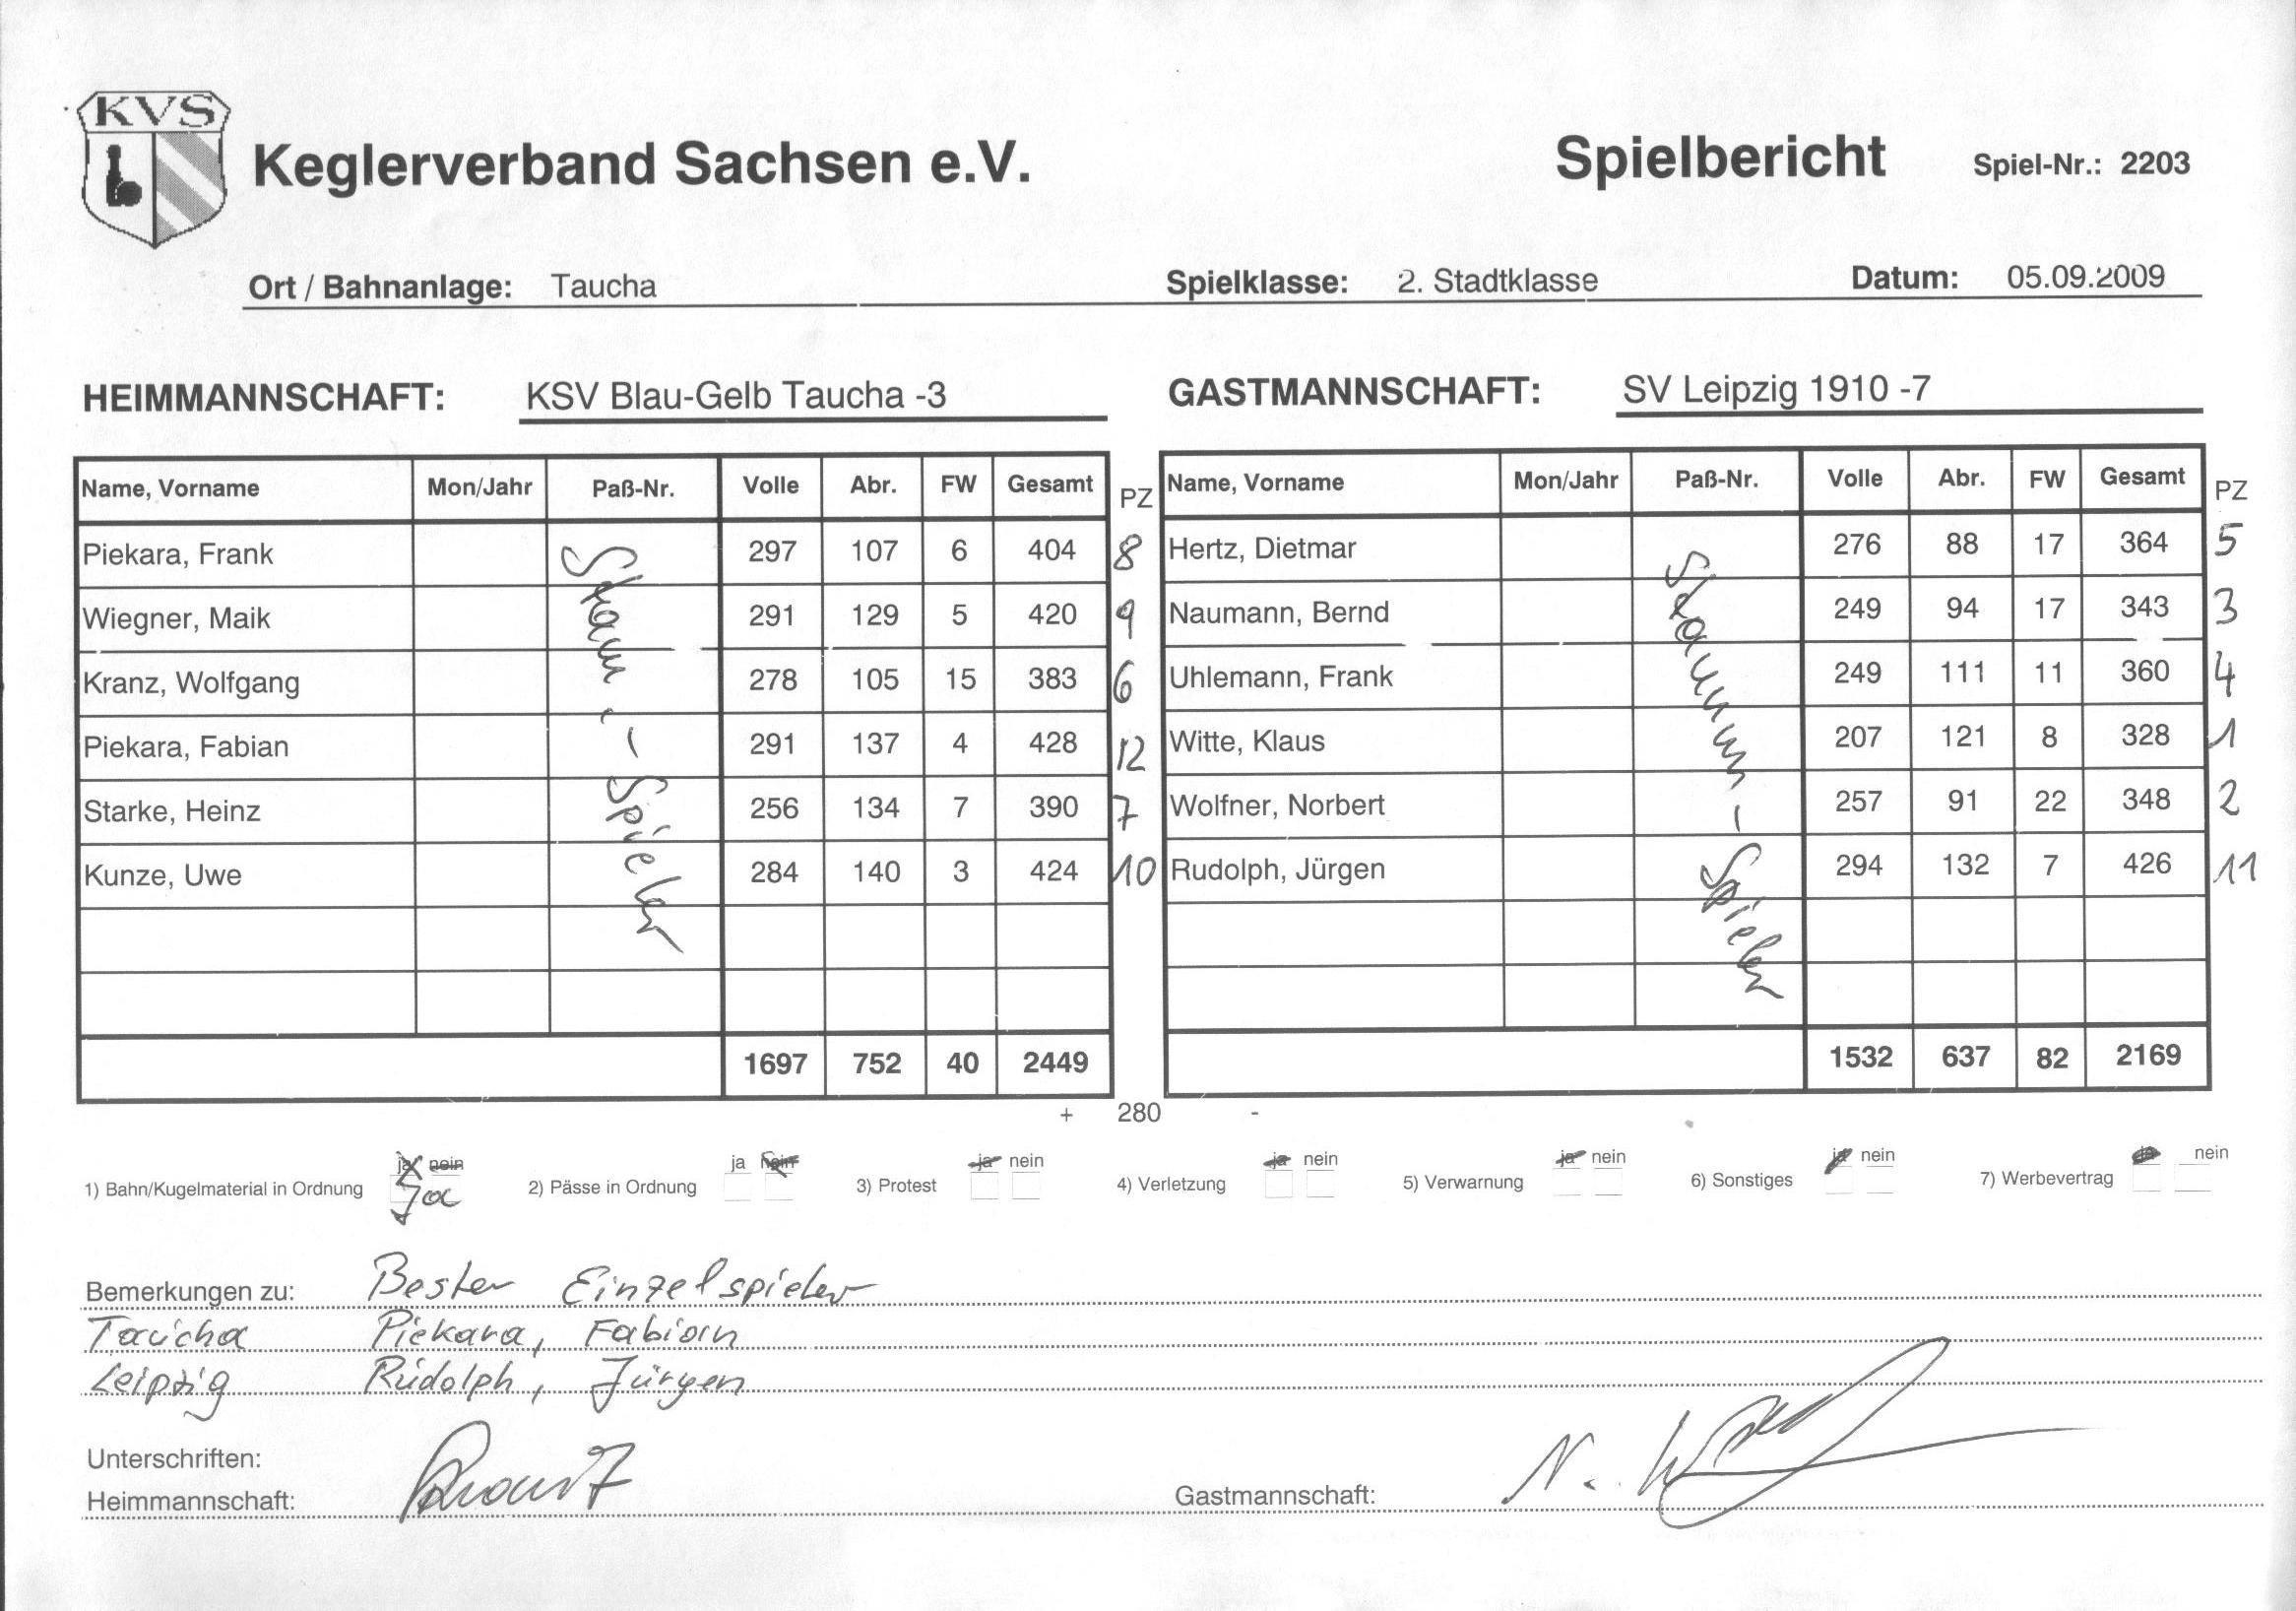 KVS
Keglerverband Sachsen e.V.
Spielbericht Spiel-Nr.: 2203
Ort / Bahnanlage: Taucha Spielklasse: 2. Stadtklasse Datum: 05.09.2009
HEIMMANNSCHAFT: KSV Blau-Gelb Taucha -3
Name, Vorname Mon/Jahr Paß-Nr. Volle Abr. FW Gesamt PZ
Piekara, Frank 297 107 6 404 8
Wiegner, Maik 291 129 5 420 9
Kranz, Wolfgang 278 105 15 383 6
Piekara, Fabian 291 137 4 428 12
Starke, Heinz 256 134 7 390 7
Kunze, Uwe 284 140 3 424 10
Stamm - Spieler
1697 752 40 2449
GASTMANNSCHAFT: SV Leipzig 1910 -7
Name, Vorname Mon/Jahr Paß-Nr. Volle Abr. FW Gesamt PZ
Hertz, Dietmar 276 88 17 364 5
Naumann, Bernd 249 94 17 343 3
Uhlemann, Frank 249 111 11 360 4
Witte, Klaus 207 121 8 328 1
Wolfner, Norbert 257 91 22 348 2
Rudolph, Jürgen 294 132 7 426 11
Stamm - Spieler
1532 637 82 2169
+ 280 -
1) Bahn/Kugelmaterial in Ordnung ja nein Ja 2) Pässe in Ordnung ja nein 3) Protest ja nein 4) Verletzung ja nein 5) Verwarnung ja nein 6) Sonstiges ja nein 7) Werbevertrag ja nein
Bemerkungen zu: Bester Einzelspieler
Taucha Piekara, Fabian
Leipzig Rudolph, Jürgen
Unterschriften:
Heimmannschaft: Gastmannschaft: